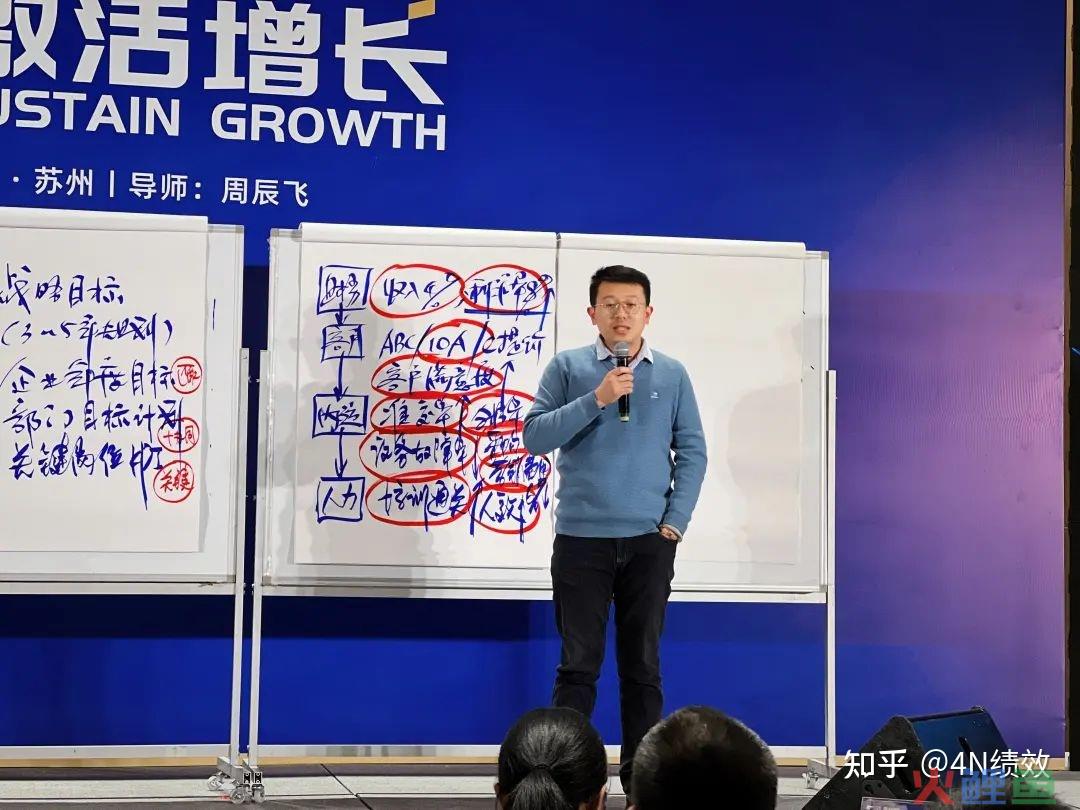 激活增长
USTAIN GROWTH
· 苏州丨导师：周辰飞
战略目标
(3~5年规划)
企业年度目标
部门目标计划
关键岗位
关键
财务
收入
客户
ABC/10A/
提价
客户满意度
内部
准交率
设备故障率
人力
培训通关
人效
知乎 @4N绩效
火鲤鱼